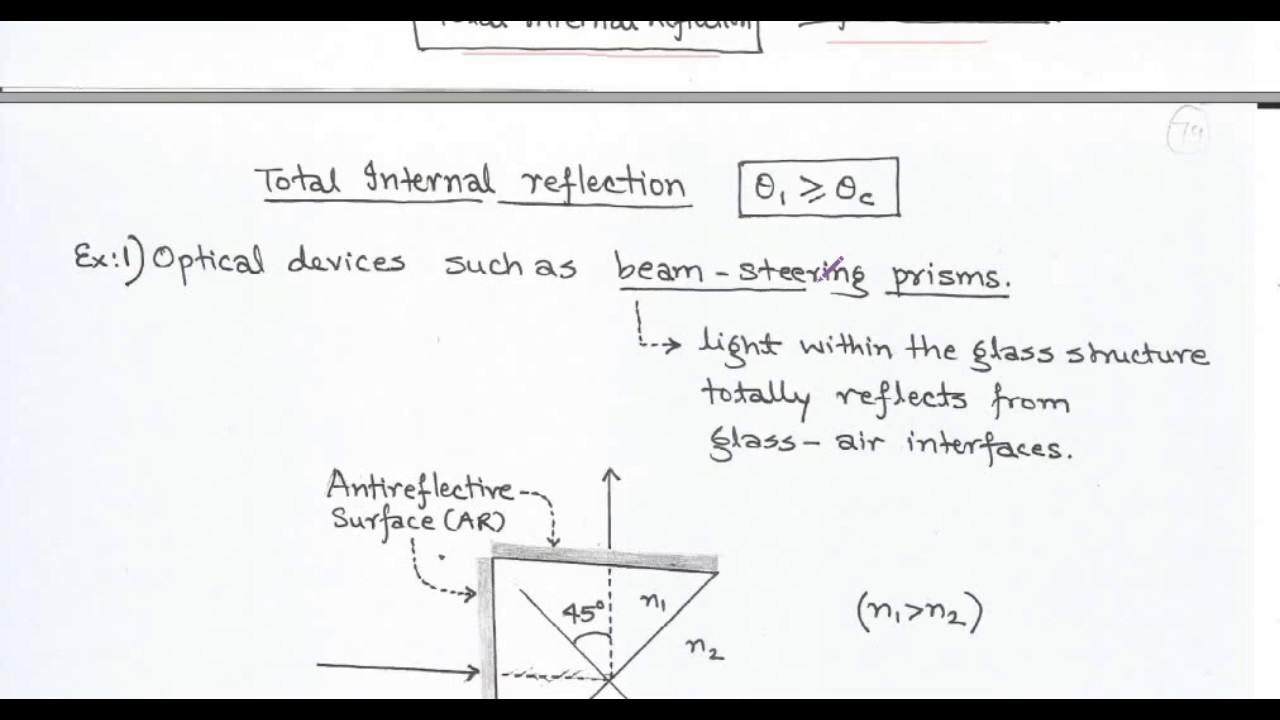 Total Internal reflection
79
Total Internal reflection θ₁ ⩾ θc
Ex:1) Optical devices such as beam - steering prisms.
light within the glass structure
totally reflects from
glass - air interfaces.
Antireflective
Surface (AR)
45°
n₁
(n₁>n₂)
n₂